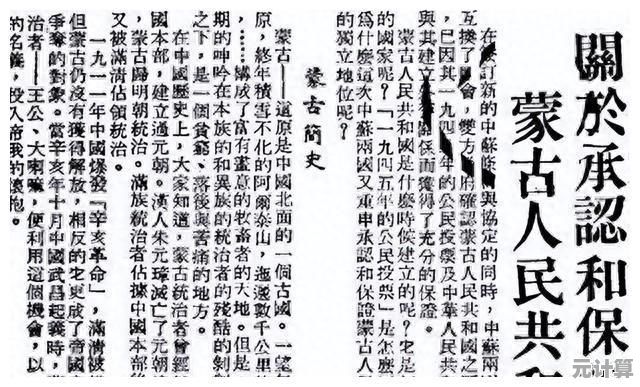 關於承認和保
蒙古人民共和
在訂新的中蘇條與協定的同時,中蘇兩
互換了會,雙方府確認蒙古人民共和國之
已因其一九四年的公民投票及中華人民共
與其建立關係而獲得了充分的保證。
蒙古人民共和國是什麼時候建立的呢?它是
的國家呢?「一九四五年的公民投票」是怎麼
爲什麼這次中蘇兩國又重申承認和保證蒙古人
的獨立地位呢?
蒙古簡史
蒙古——這原是中國北面的一個古國。一望
原,終年積雪不化的阿爾泰山,迤邐數千公里
……構成了富有畫意的牧畜者的大地。但是
期的呻吟在本族的和異族的統治者的殘酷的剝
之下,是一個貧窮、落後與苦痛的地方。
在中國歷史上,大家知道,蒙古統治者曾經
國本部,建立過元朝。漢人朱元璋滅亡了元朝
,蒙古歸明朝統治。滿族統治者佔據中國本部後
又被滿清佔領統治。
一九一一年中國爆發『辛亥革命』,滿清被
但蒙古仍沒有獲得解放,相反的它更成了帝國
爭奪的對象。當辛亥年十月中國武昌起義時,
治者——王公、大喇嘛,便利用這個機會,以
的名義,投入帝俄的懷抱。
元计算